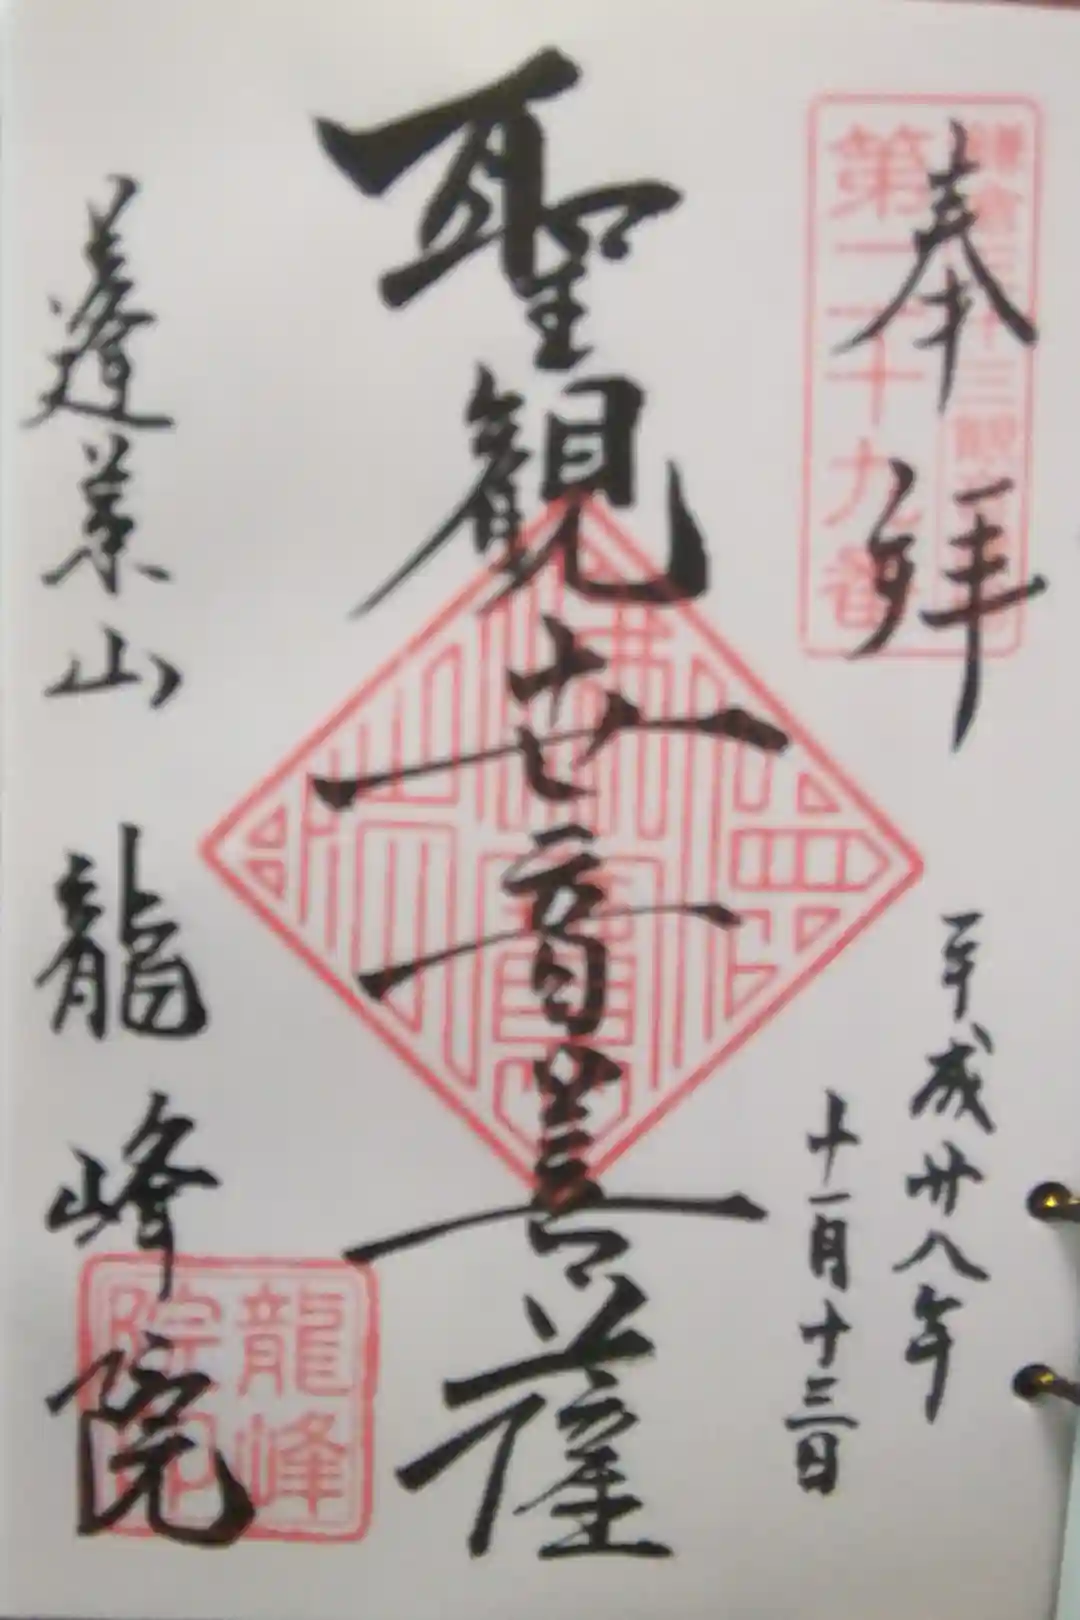 奉拝
鎌倉三十三観
第二十九番
平成廿八年
十一月十三日
聖観世音菩薩
蓬莱山
龍峰院
龍峰
院印